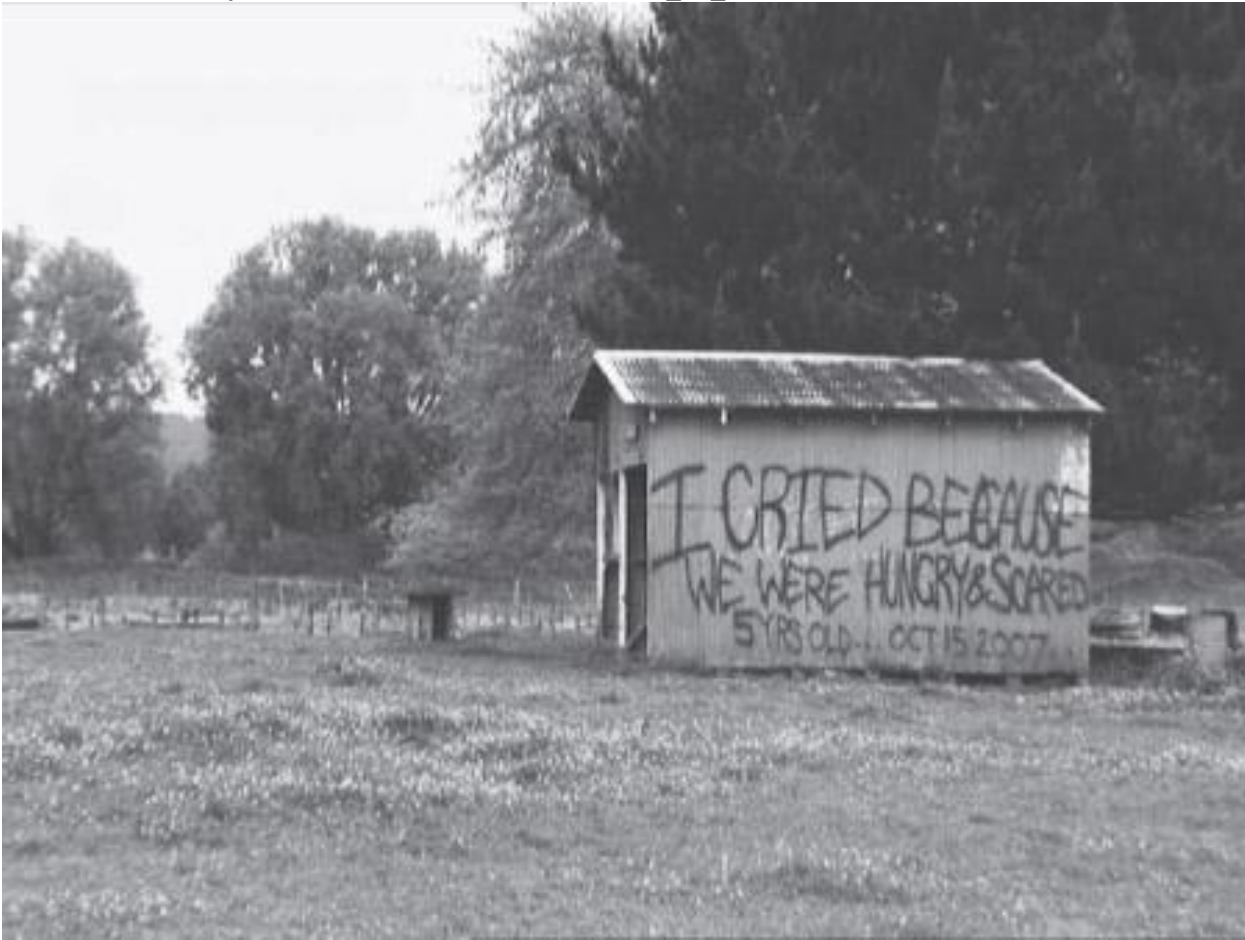 I CRIED BECAUSE
WE WERE HUNGRY & SCARED
5 YRS OLD... OCT 15 2007...